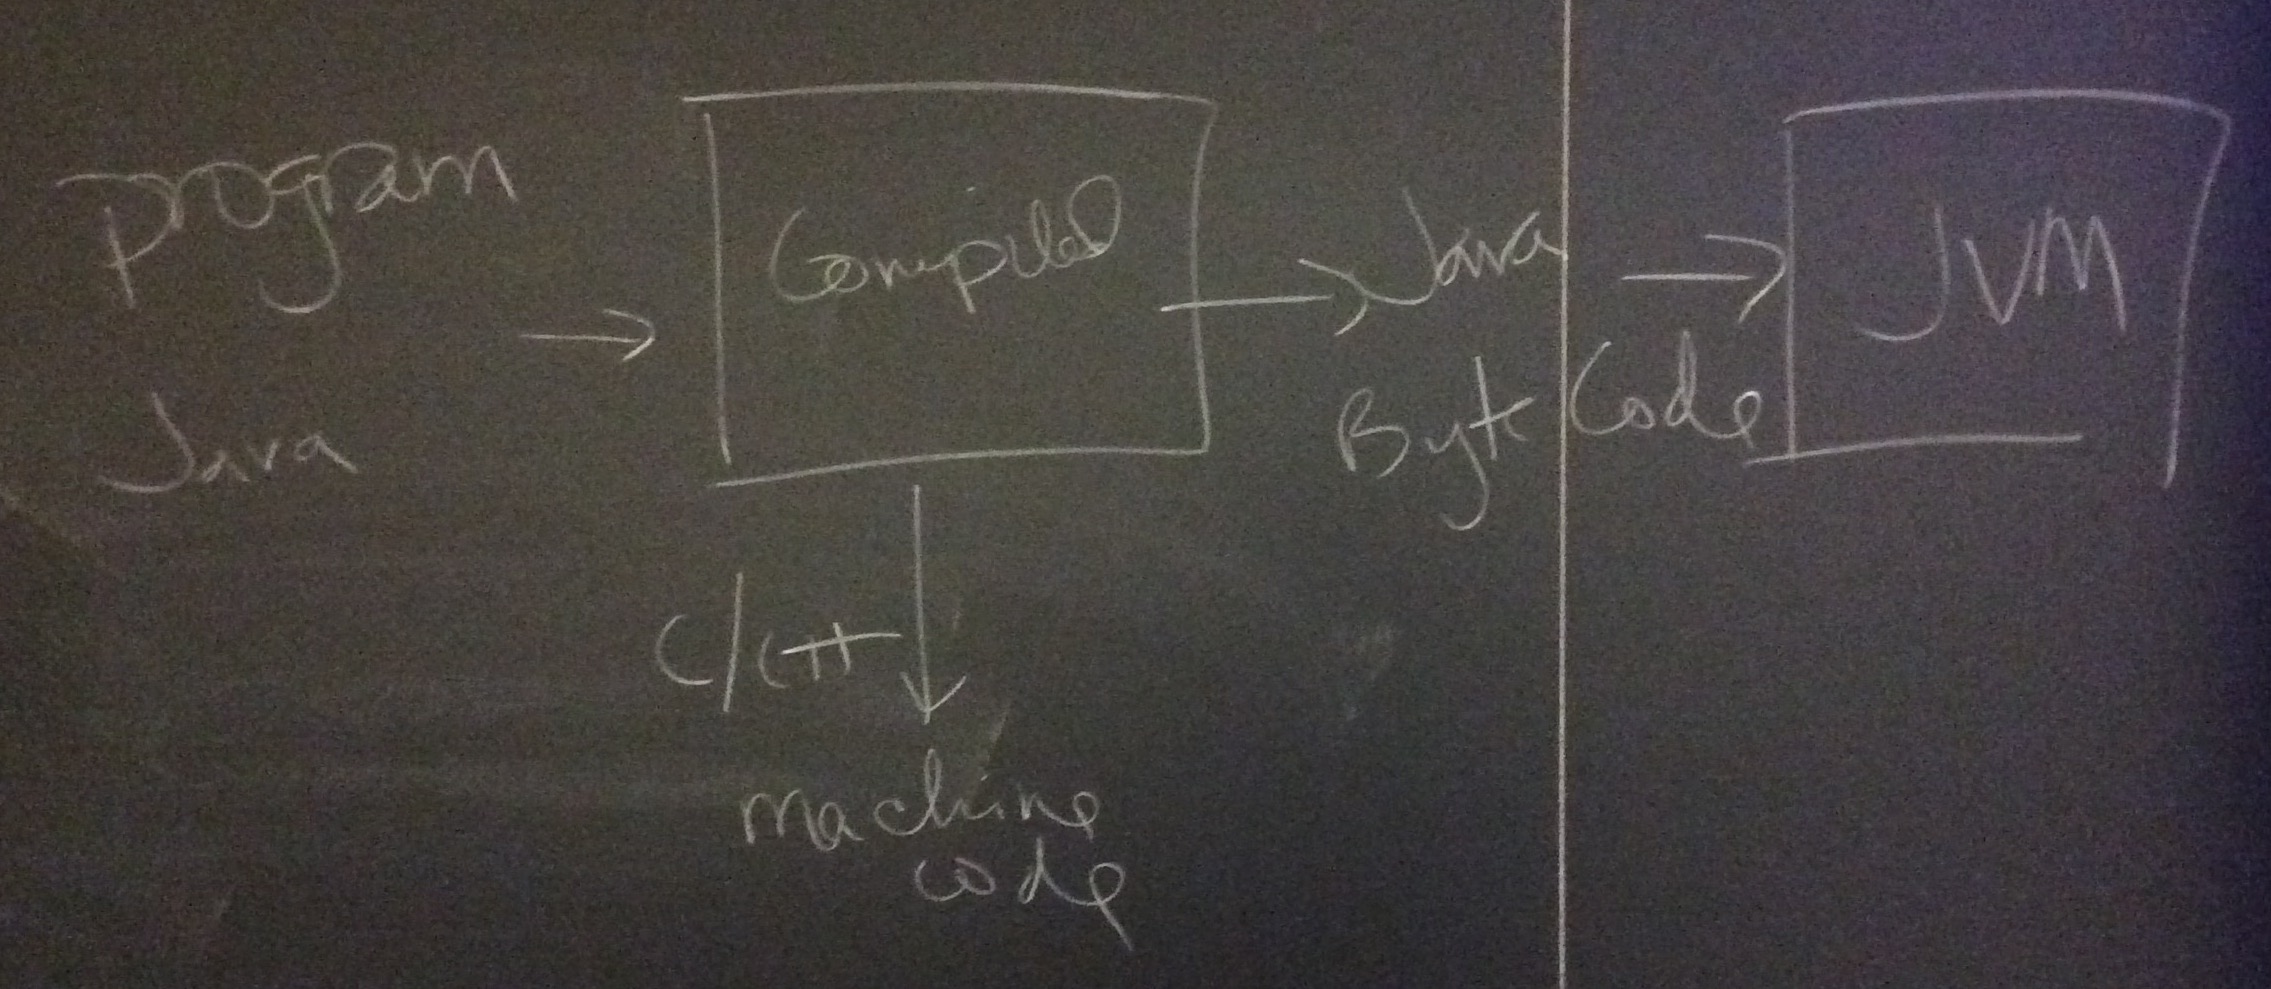 program
Java
Compiled
Java
Byte Code
JVM
C/C++
machine
code